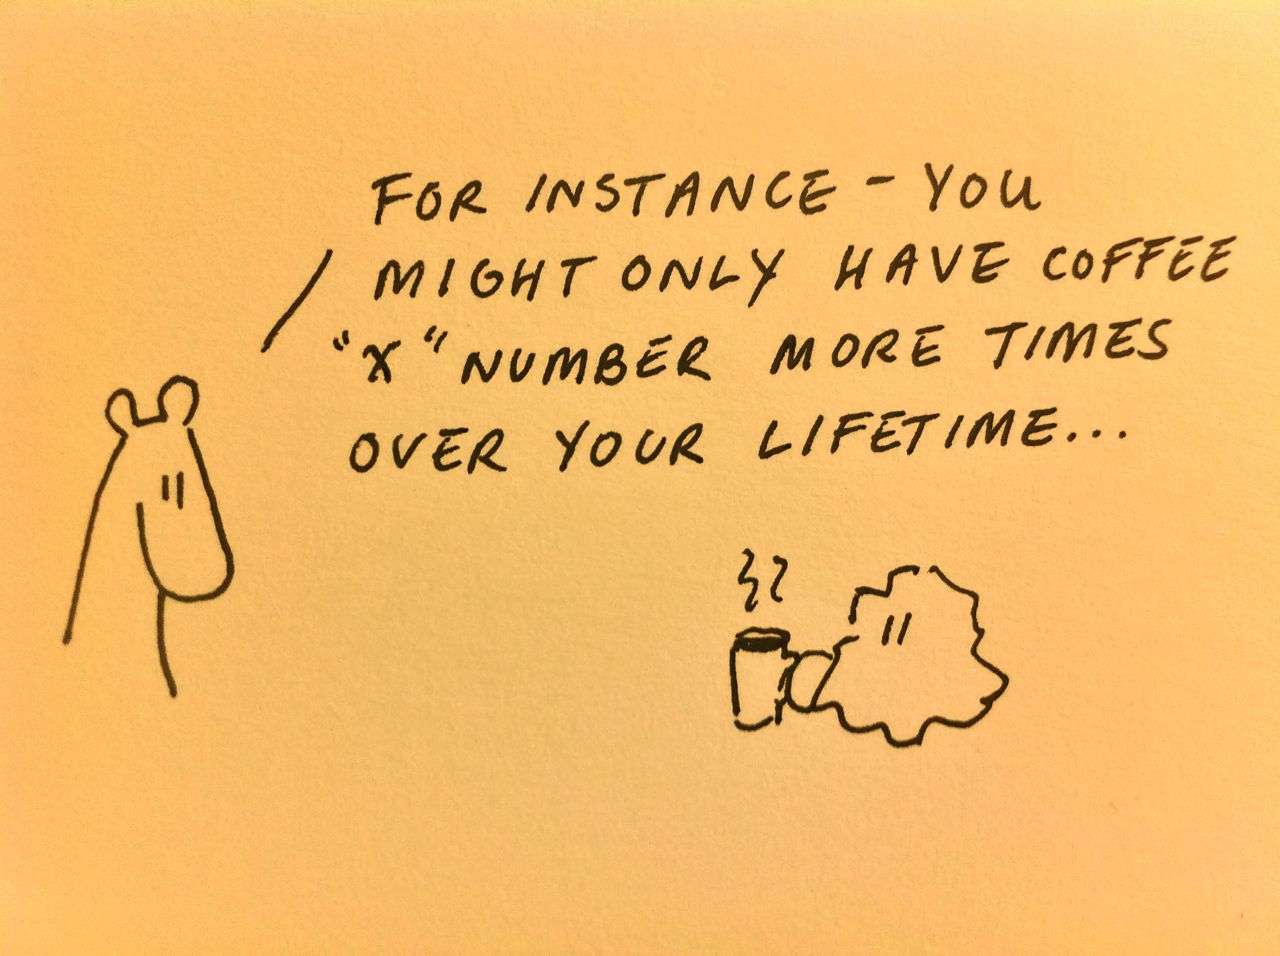 FOR INSTANCE - YOU
MIGHT ONLY HAVE COFFEE
"X" NUMBER MORE TIMES
OVER YOUR LIFETIME...